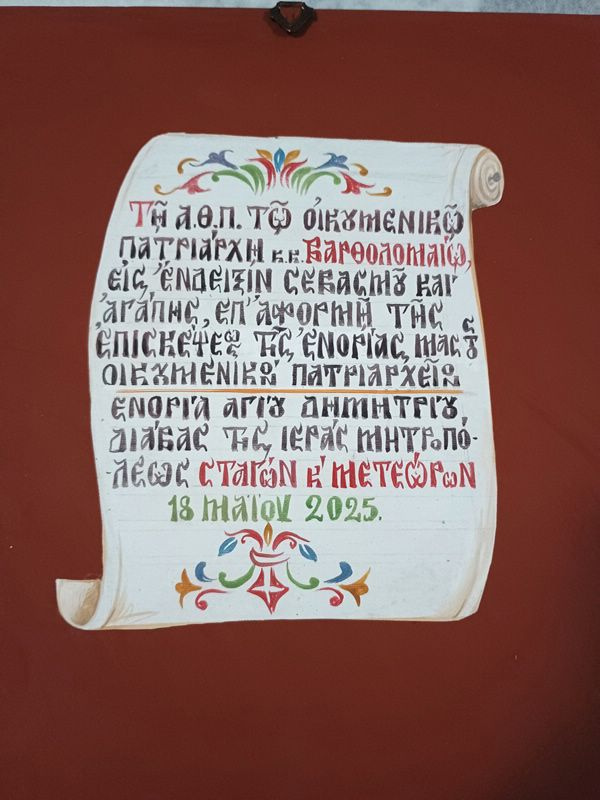 Τῇ Α.Θ.Π. Τῷ ΟἰΚȣΜΕΝΙΚῷ
ΠΑΤΡΙΆΡΧΗ κ.κ. ΒΑΡΘΟΛΟΜΑΊῼ,
ΕἸϹ ἜΝΔΕΙΞΙΝ ϹΕΒΑϹΜȣ͂ ΚΑῚ
ἈΓΆΠΗϹ, ἘΠ' ἈΦΟΡΜΗ͂ ΤΗ͂Ϲ
ἘΠΙϹΚΈΨΕΩϹ ΤΗ͂Ϲ ἘΝΟΡΊΑϹ ΜΑϹ Τȣ͂
ΟΙΚȣΜΕΝΙΚΟΎ ΠΑΤΡΙΑΡΧΕΊΟΥ
ΕΝΟΡΊΑ ΑΓΊȣ ΔΗΜΗΤΡΊȣ
ΔΙΆΒΑϹ ΤΗϹ ΙΕΡΆϹ ΜΗΤΡΟΠΌ-
-ΛΕΩϹ ϹΤΑΓΏΝ Κ' ΜΕΤΕΏΡΩΝ
18 ΜΑΪ́ΟΥ 2025.